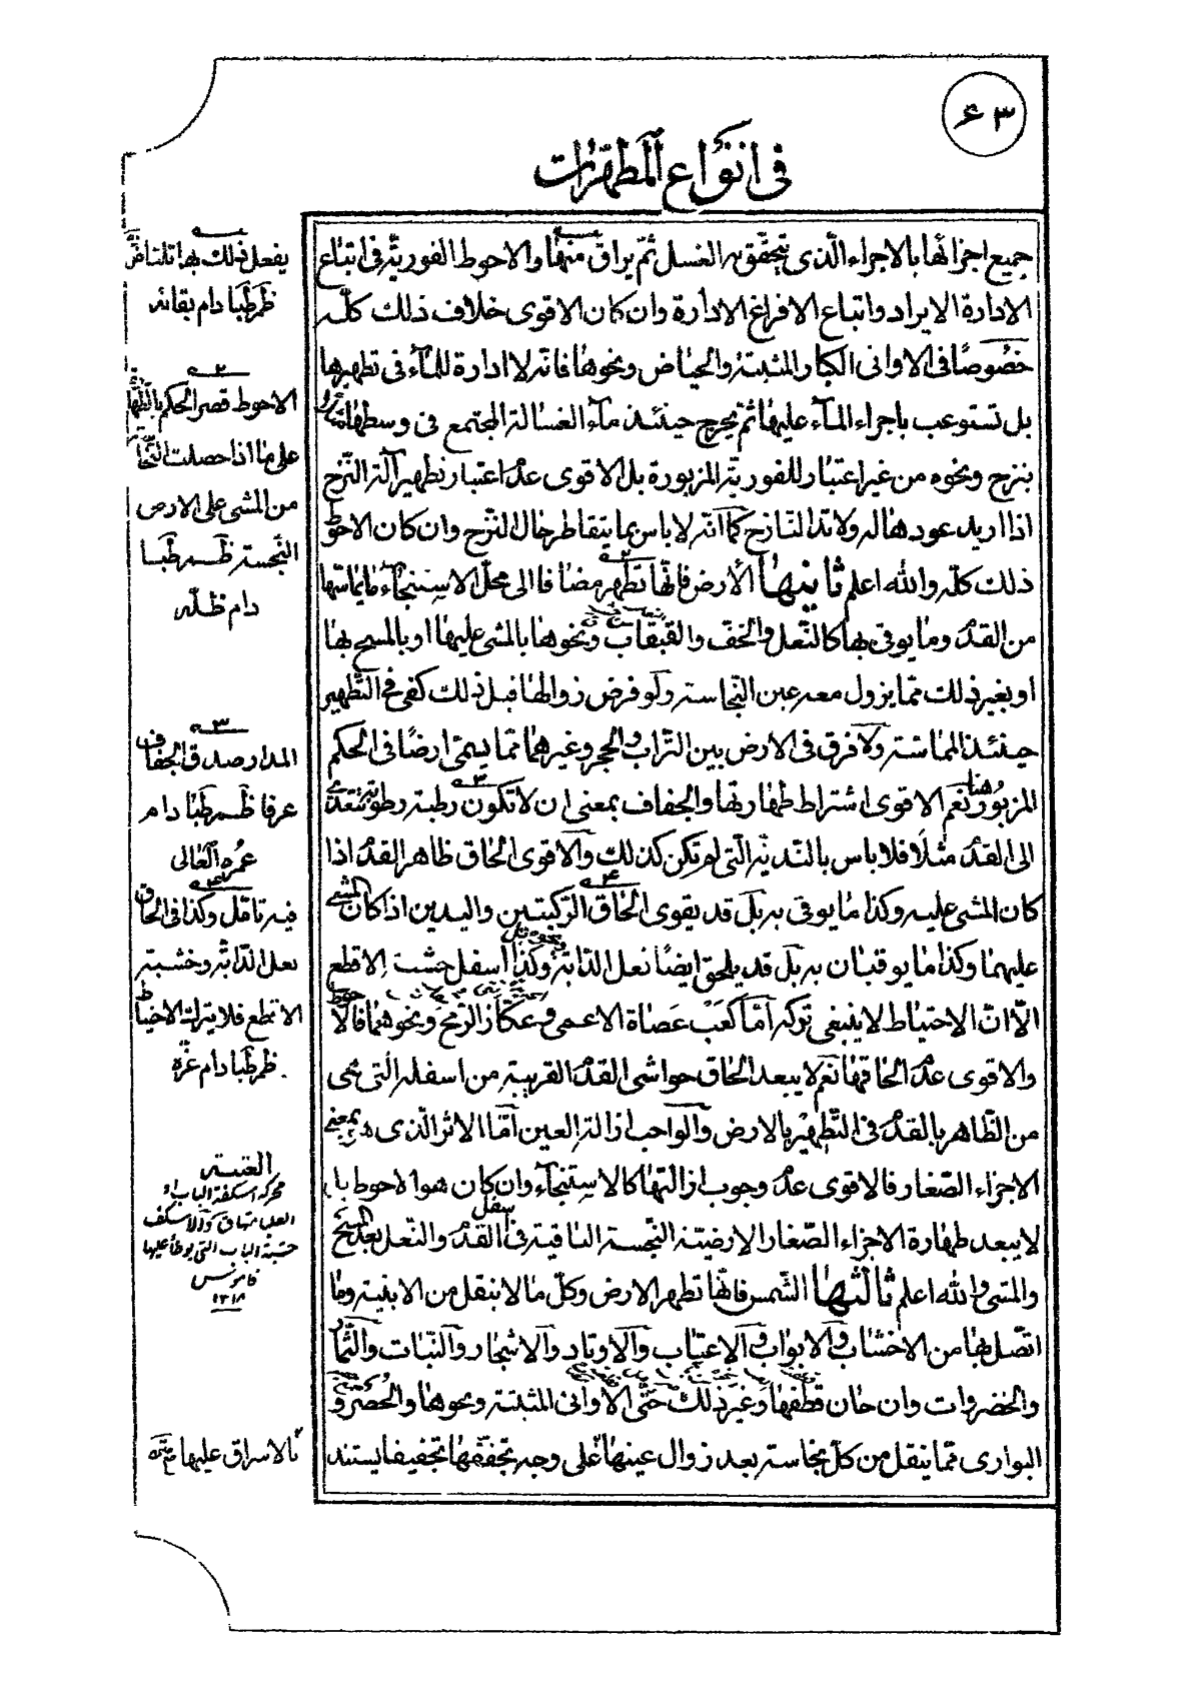 ٦٣
فی انواع المطهرات
جمیع اجزائها بالاجراء الّذی یتحقّق به الغسل ثمّ یراق منها والاحوط الفوریّة فی اتباع
الادارة الایراد واتباع الافراغ الادارة وان کان الاقوی خلاف ذلک کلّه
خصوصًا فی الاوانی الکبار المثبتة والحیاض ونحوها فانّه لا ادارة للمآء فی تطهیرها
بل تستوعب باجراء المآء علیها ثمّ یخرج حینئذ مآء الغسالة المجتمع فی وسطها
بنزح ونحوه من غیر اعتبار للفوریّة المزبورة بل الاقوی عدم اعتبار تطهیر آلة النّزح
اذا ارید عودها له ولا ید النّازح کما انّه لا باس بما یتقاطر حال النّزح وان کان الاحوط
ذلک کلّه والله اعلم ثانیها الأرض فانّها تطهر مضافا الی محلّ الاستنجآء ما یماسّها
من القدم وما یوقی بها کالنّعل والخفّ والقبقاب ونحوها بالمشی علیها او بالمسح بها
او بغیر ذلک ممّا یزول معه عین النّجاسة ولو فرض زوالها قبل ذلک کفی فی التّطهیر
حینئذ المماسّة ولا فرق فی الارض بین التّراب والحجر وغیرهما ممّا یسمّی ارضًا فی الحکم
المزبور هنا نعم الاقوی اشتراط طهارتها والجفاف بمعنی ان لا تکون رطبة رطوبة تتعدّی
الی القدم مثلًا فلا باس بالنّدیّة الّتی لم تکن کذلک والاقوی الحاق ظاهر القدم اذا
کان المشی علیه وکذا ما یوقی به بل قد یقوی الحاق الرّکبتین والیدین اذا کان المشی
علیهما وکذا ما یوقیان به بل قد یلحق ایضًا نعل الدّابّة وکذا اسفل خشبة الاقطع
الّا انّ الاحتیاط لا ینبغی ترکه امّا کعب عصاة الاعمی وعکّاز الرّمح ونحوهما فالاحوط
والاقوی عدم الحاقها نعم لا یبعد الحاق حواشی القدم القریبة من اسفله الّتی هی
من الظّاهر بالقدم فی التّطهیر بالارض والواجب ازالة العین امّا الاثر الّذی هو بمعنی
الاجزاء الصّغار فالاقوی عدم وجوب ازالتها کالاستنجآء وان کان هو الاحوط بل
لا یبعد طهارة الاجزاء الصّغار الارضیّة النّجسة الباقیة فی اسفل القدم والنّعل بعد المسح
والمشی والله اعلم ثالثها الشّمس فانّها تطهر الارض وکلّ ما لا ینقل من الابنیة وما
اتّصل بها من الاخشاب والابواب والاعتاب والاوتاد والاشجار والنّبات والثّمار
والخضروات وان حان قطفها وغیر ذلک حتّی الاوانی المثبتة ونحوها والحصر و
البواری ممّا ینقل من کلّ نجاسة بعد زوال عینها علی وجه تجفّفها تجفیفا یستند
١
یفعل ذلک بها ثلثا
ظم طبا دام بقائه
٢
الاحوط قصر الحکم
علی ما اذا حصلت
من المشی علی الارض
النّجسة ظم طبا
دام ظلّه
٣
المدار صدق الجفاف
عرفا ظم طبا دام
عمره العالی
٤
فیه تامّل وکذا فی الحاق
نعل الدّابّة وخشبة
الاقطع فلا یترک الاحتیاط
ظم طبا دام عزّه
العتبة
محرکة اسکفة الباب او
العلیا منها والاسکف
خشبة الباب التی یوطأ علیها
قاموس
١٣١٨
بالاشراق علیها